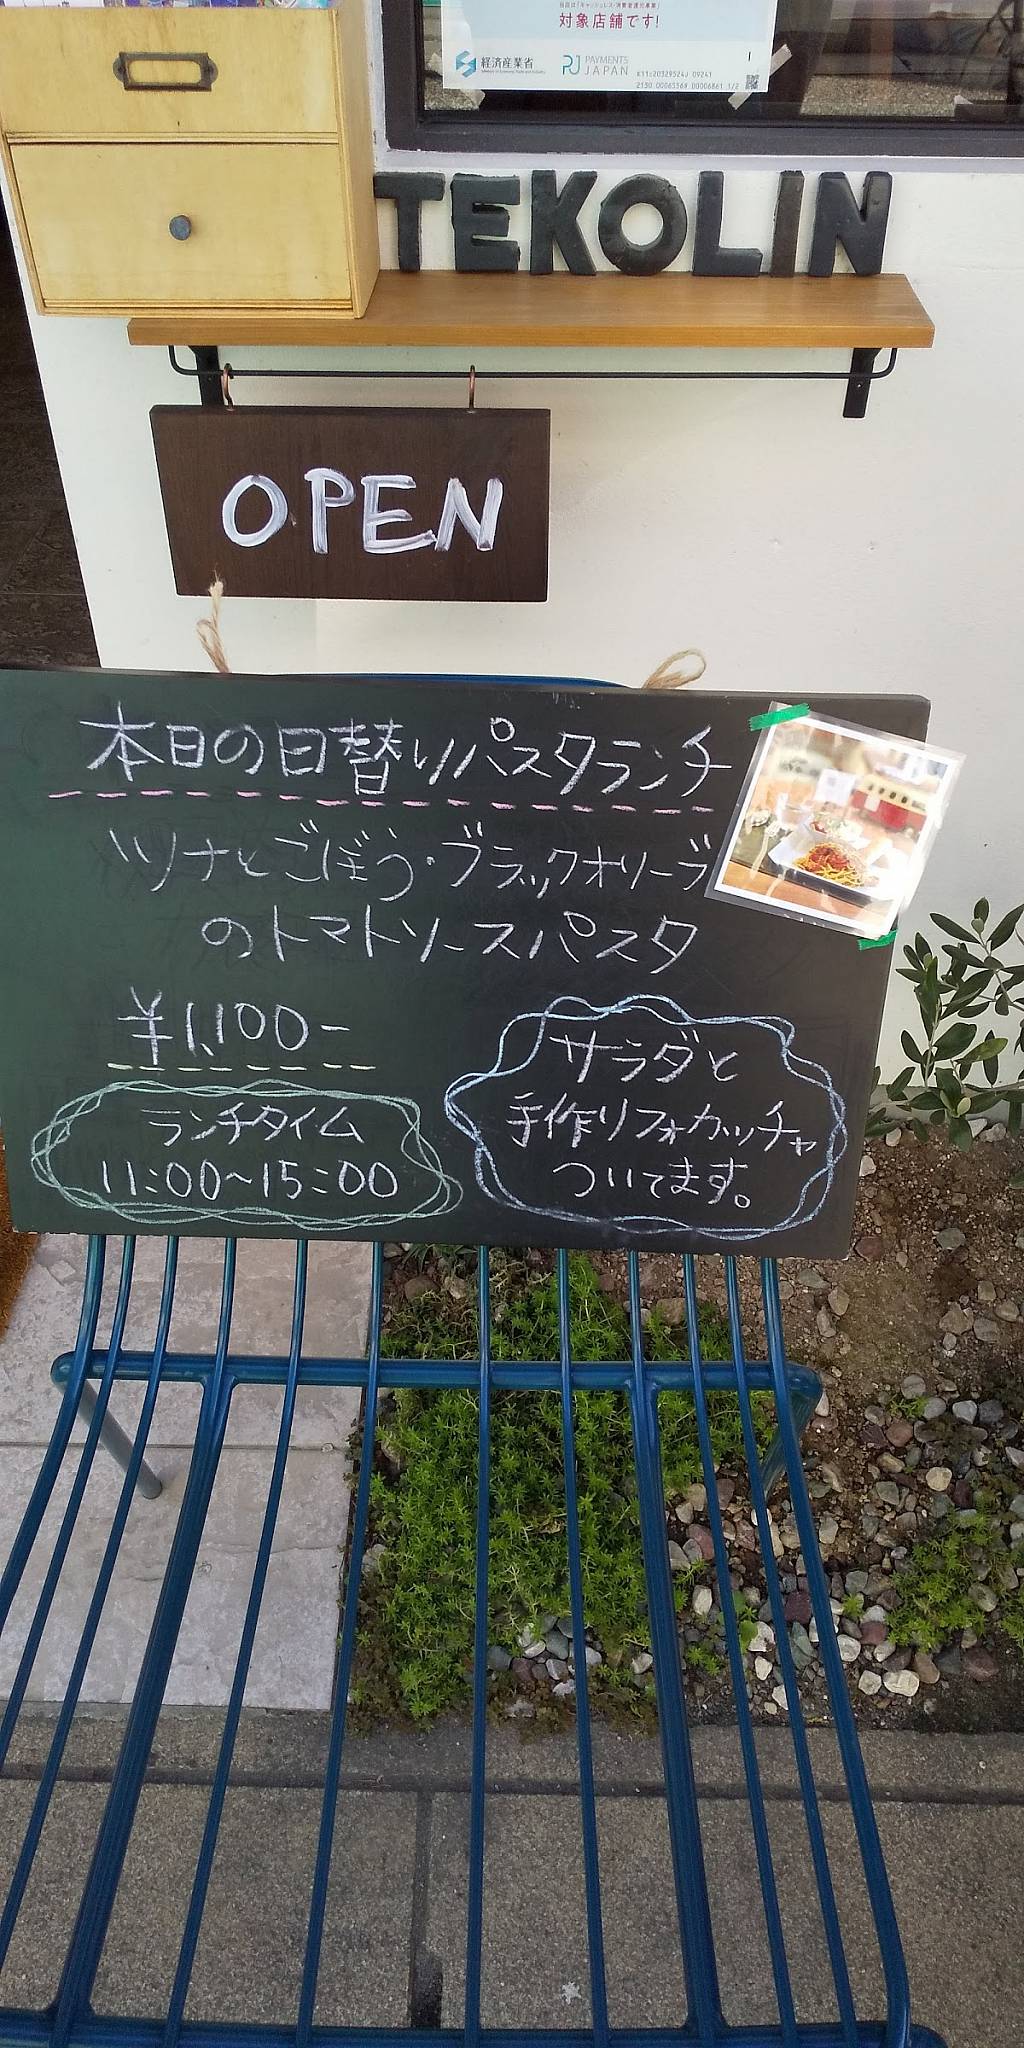 当店は「キャッシュレス・消費者還元事業」
対象店舗です!
経済産業省
PAYMENTS
JAPAN
TEKOLIN
OPEN
本日の日替りパスタランチ
ツナとごぼう・ブラックオリーブ
のトマトソースパスタ
¥1,100-
サラダと
手作りフォカッチャ
ついてます。
ランチタイム
11:00~15:00